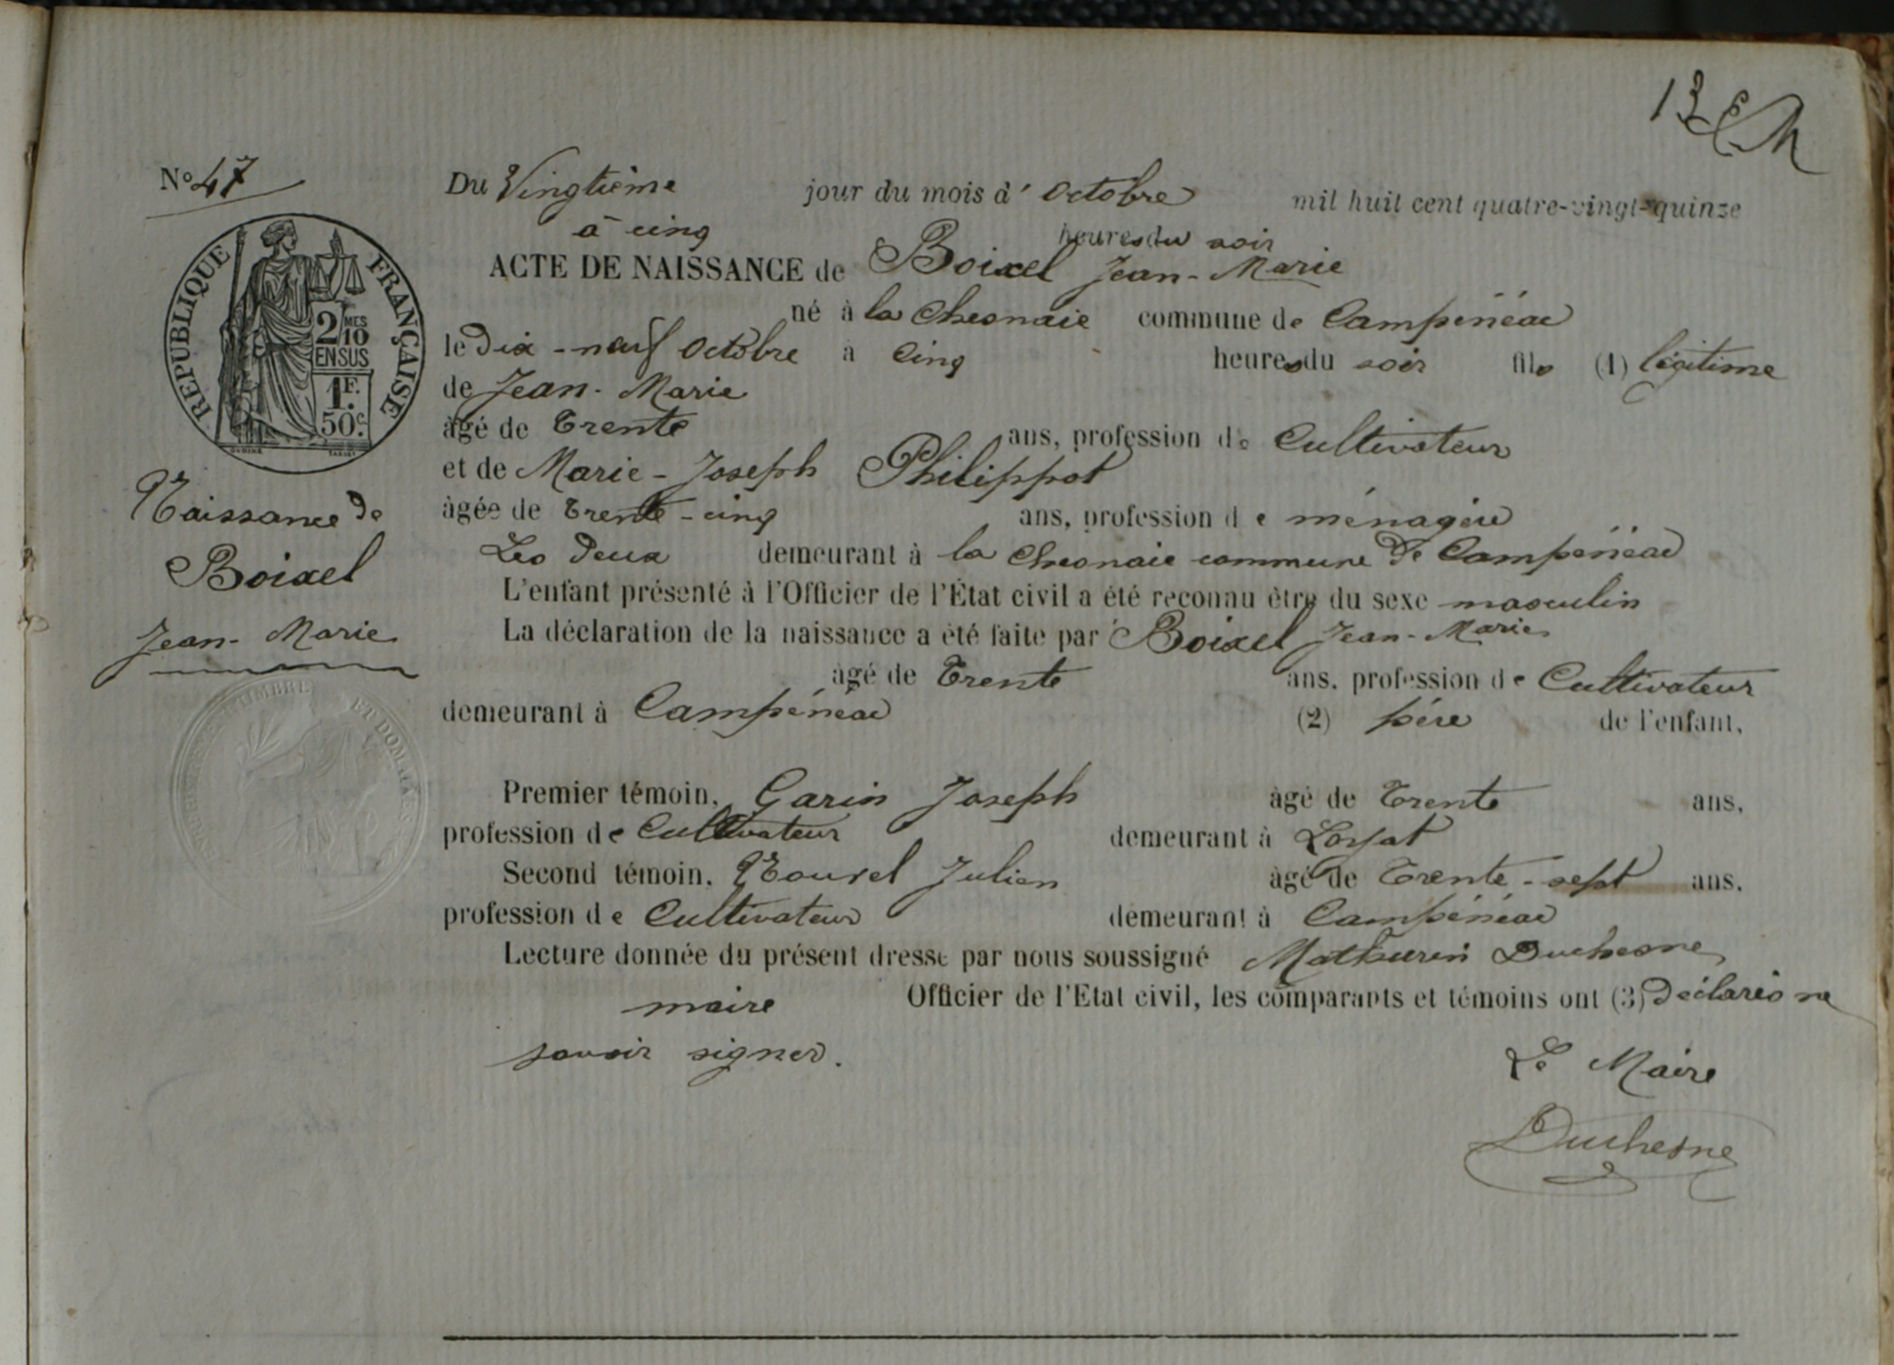 13e M
N° 47
Du Vingtième jour du mois d' octobre mil huit cent quatre-vingt-quinze
à cinq heures du soir
ACTE DE NAISSANCE de Boixel Jean-Marie
né à la Chesnaie commune de Campénéac
le dix-neuf octobre à cinq heures du soir fils (1) légitime
de Jean-Marie
âgé de Trente ans, profession de Cultivateur
et de Marie-Joseph Philippot
âgée de Trente-cinq ans, profession de ménagère
Les deux demeurant à la Chesnaie commune de Campénéac
L'enfant présenté à l'Officier de l'État civil a été reconnu être du sexe masculin
La déclaration de la naissance a été faite par Boixel Jean-Marie
âgé de Trente ans, profession de Cultivateur
demeurant à Campénéac (2) père de l'enfant,
Premier témoin, Garin Joseph âgé de Trente ans,
profession de Cultivateur demeurant à Loyat
Second témoin, Julien âgé de Trente-sept ans,
profession de Cultivateur demeurant à Campénéac
Lecture donnée du présent dressé par nous soussigné Mathurin Duchesne
maire Officier de l'Etat civil, les comparants et témoins ont (3) déclarés ne
savoir signer.
Le Maire
Duchesne
RÉPUBLIQUE FRANÇAISE
2/10 MES
EN SUS
1F.
50c.
Naissance de
Boixel
Jean-Marie
TIMBRE ET DOMAINES